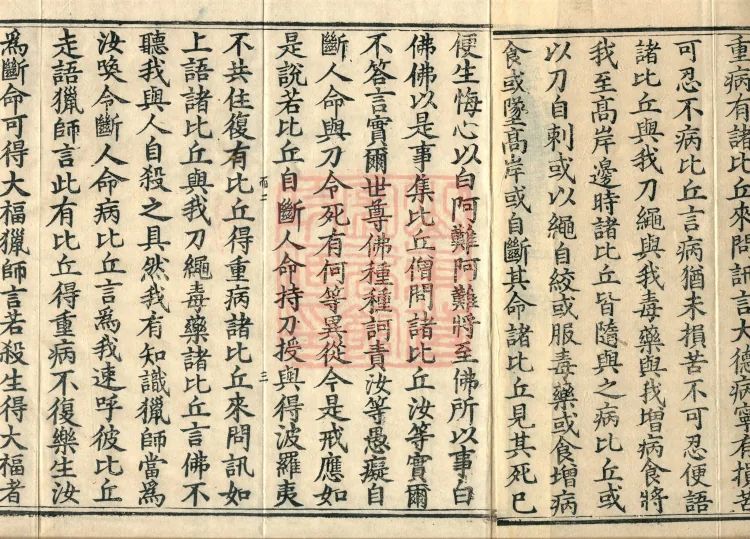 重病有諸比丘來問訊言大德病寧有損苦
可忍不病比丘言病猶未損苦不可忍便語
諸比丘與我刀繩與我毒藥與我增病食將
我至高岸邊時諸比丘皆隨與之病比丘或
以刀自刺或以繩自絞或服毒藥或食增病
食或墜高岸或自斷其命諸比丘見其死已
便生悔心以白阿難阿難將至佛所以事白
佛佛以是事集比丘僧問諸比丘汝等實爾
不答言實爾世尊佛種種訶責汝等愚癡自
斷人命與刀令死有何等異從今是戒應如
是說若比丘自斷人命持刀授與得波羅夷
而二 三
不共住復有比丘得重病諸比丘來問訊如
上語諸比丘與我刀繩毒藥諸比丘言佛不
聽我與人自殺之具然我有知識獵師當為
汝喚令斷人命病比丘言為我速呼彼比丘
走語獵師言此有比丘得重病不復樂生汝
為斷命可得大福獵師言若殺生得大福者